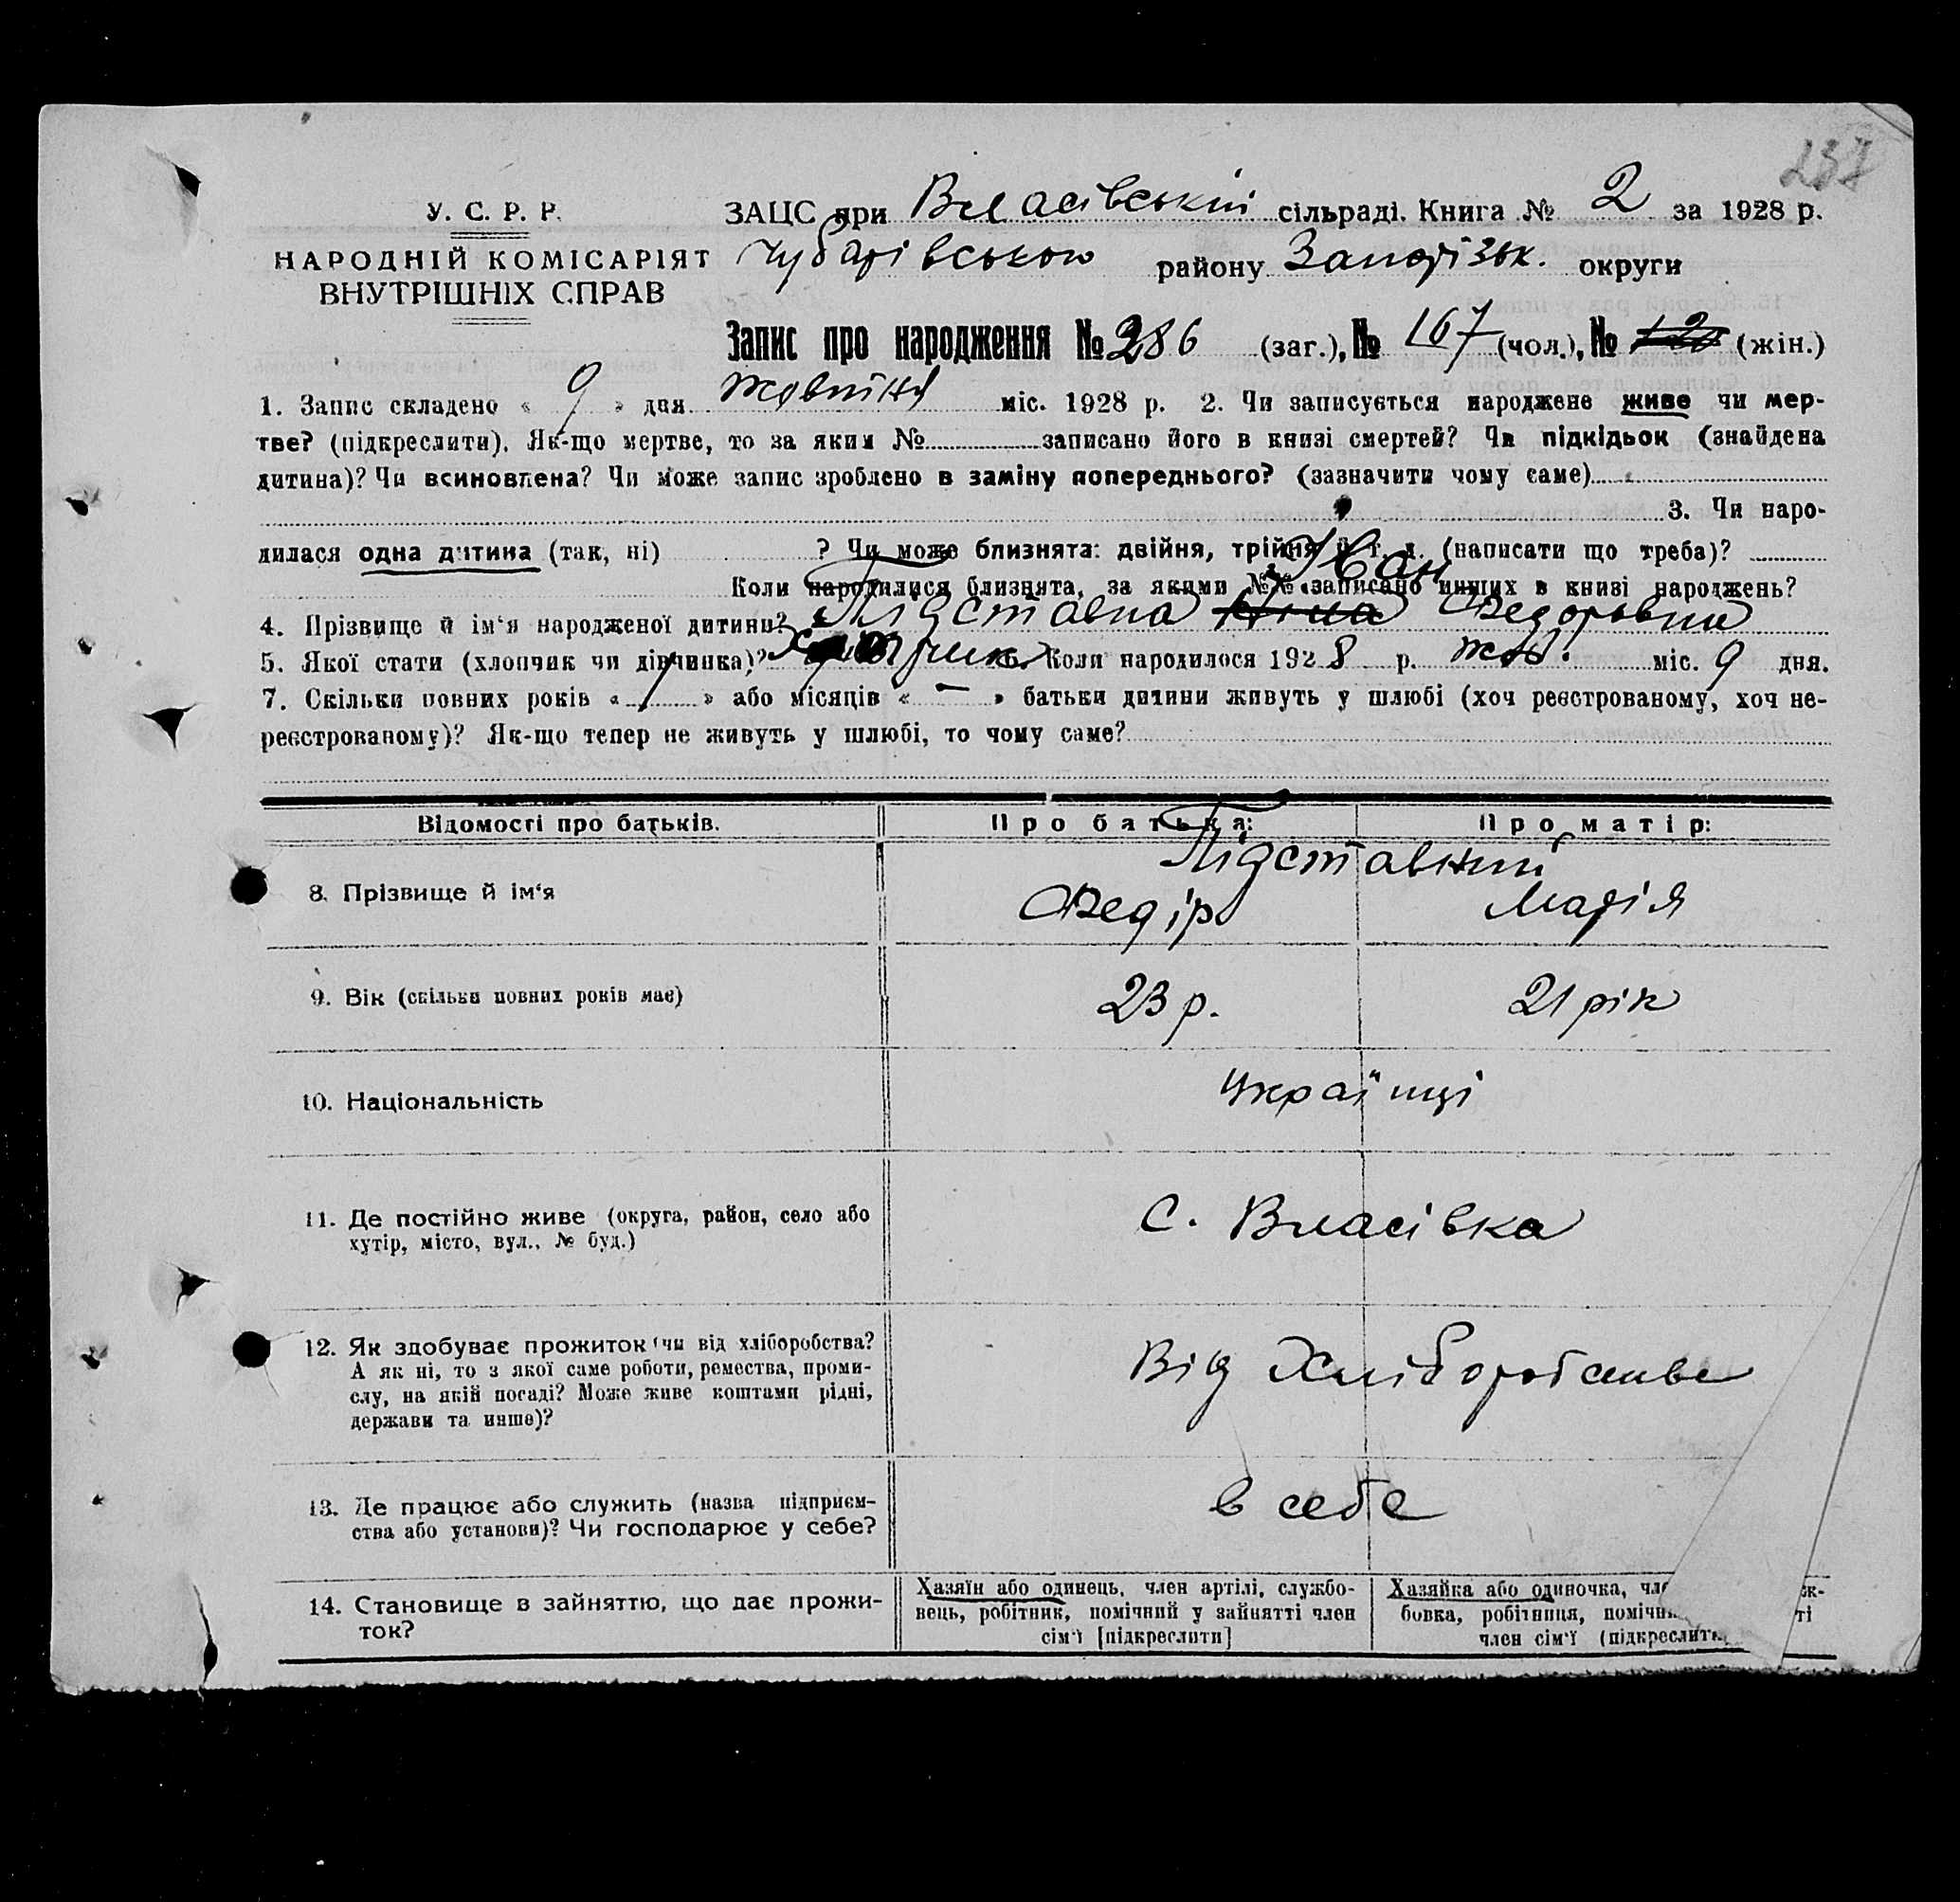 237
У. С. Р. Р.
НАРОДНІЙ КОМІСАРІЯТ
ВНУТРІШНІХ СПРАВ
ЗАЦС при Власівській сільраді. Книга № 2 за 1928 р.
Чубарівського району Запорізьк. округи
Запис про народження № 286 (заг.), № 167 (чол.), № 120 (жін.)
1. Запис складено « 9 » дня жовтня міс. 1928 р. 2. Чи записується народжене живе чи мер-
тве? (підкреслити). Як-що мертве, то за яким № записано його в книзі смертей? Чи підкідьок (знайдена
дитина)? Чи всиновлена? Чи може запис зроблено в заміну попереднього? (зазначити чому саме)
3. Чи наро-
дилася одна дитина (так, ні) ? Чи може близнята: двійня, трійня й т. д. (написати що треба)?
Коли народилися близнята, за якими №№ записано инших в книзі народжень?
Іван
4. Прізвище й ім‘я народженої дитини? Підставна Федоровни
5. Якої стати (хлопчик чи дівчинка)? Коли народилося 1928 р. жов. міс. 9 дня.
7. Скільки повних років « 1 » або місяців « — » батьки дитини живуть у шлюбі (хоч реєстрованому, хоч не-
реєстрованому)? Як-що тепер не живуть у шлюбі, то чому саме?
Відомості про батьків. Про батька: Про матір:
Підставний
8. Прізвище й ім‘я Федір Марія
9. Вік (скільки повних років має) 23 р. 21 рік
10. Національність Українці
11. Де постійно живе (округа, район, село або
хутір, місто, вул., № буд.)
С. Власівка
12. Як здобуває прожиток (чи від хліборобства?
А як ні, то з якої саме роботи, ремества, проми-
слу, на якій посаді? Може живе коштами рідні,
держави та инше)?
Від Хліборобства
13. Де працює або служить (назва підприєм-
ства або установи)? Чи господарює у себе?
в себе
14. Становище в зайняттю, що дає прожи-
ток?
Хазяїн або одинець, член артілі, службо-
вець, робітник, помічний у зайнятті член
сім‘ї [підкреслити]
Хазяйка або одиночка, чле
бовка, робітниця, помічн
член сім‘ї (підкреслити